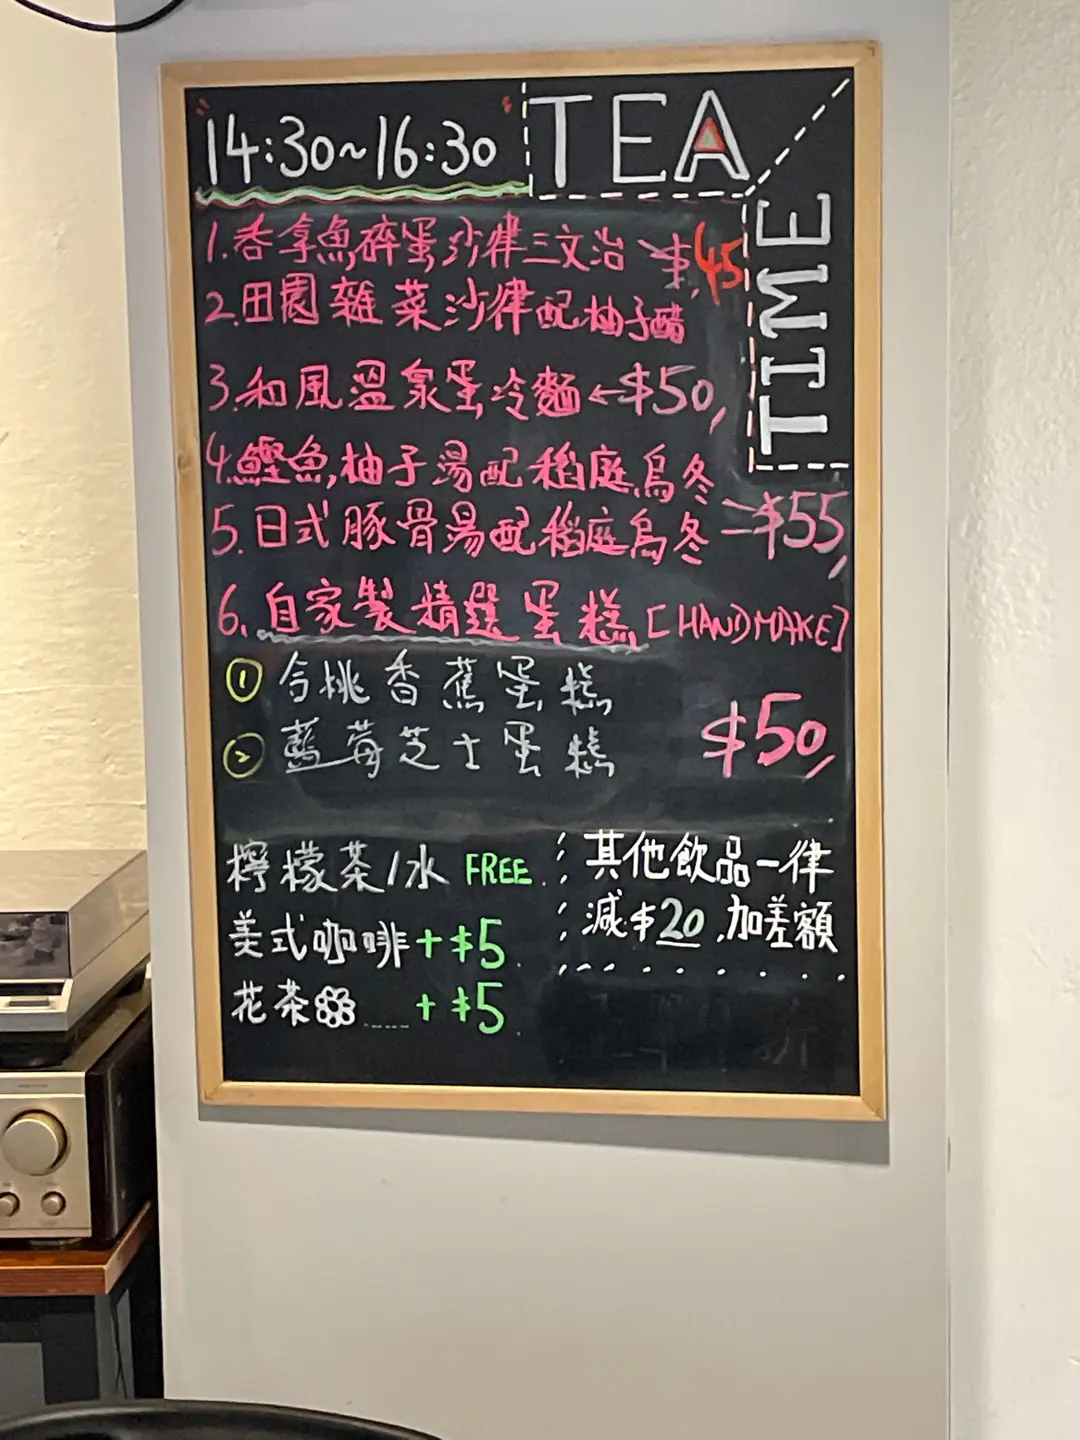 14:30~16:30 TEA TIME
1.吞拿魚碎蛋沙律三文治 $45
2.田園雜菜沙律配柚子醋
3.和風溫泉蛋冷麵←$50
4.鰹魚柚子湯配稻庭烏冬
5.日式豚骨湯配稻庭烏冬 =$55
6.自家製精選蛋糕[HANDMAKE]
① 合桃香蕉蛋糕
② 藍莓芝士蛋糕
$50
檸檬茶/水 FREE
美式咖啡+$5
花茶 +$5
其他飲品一律
減$20,加差額